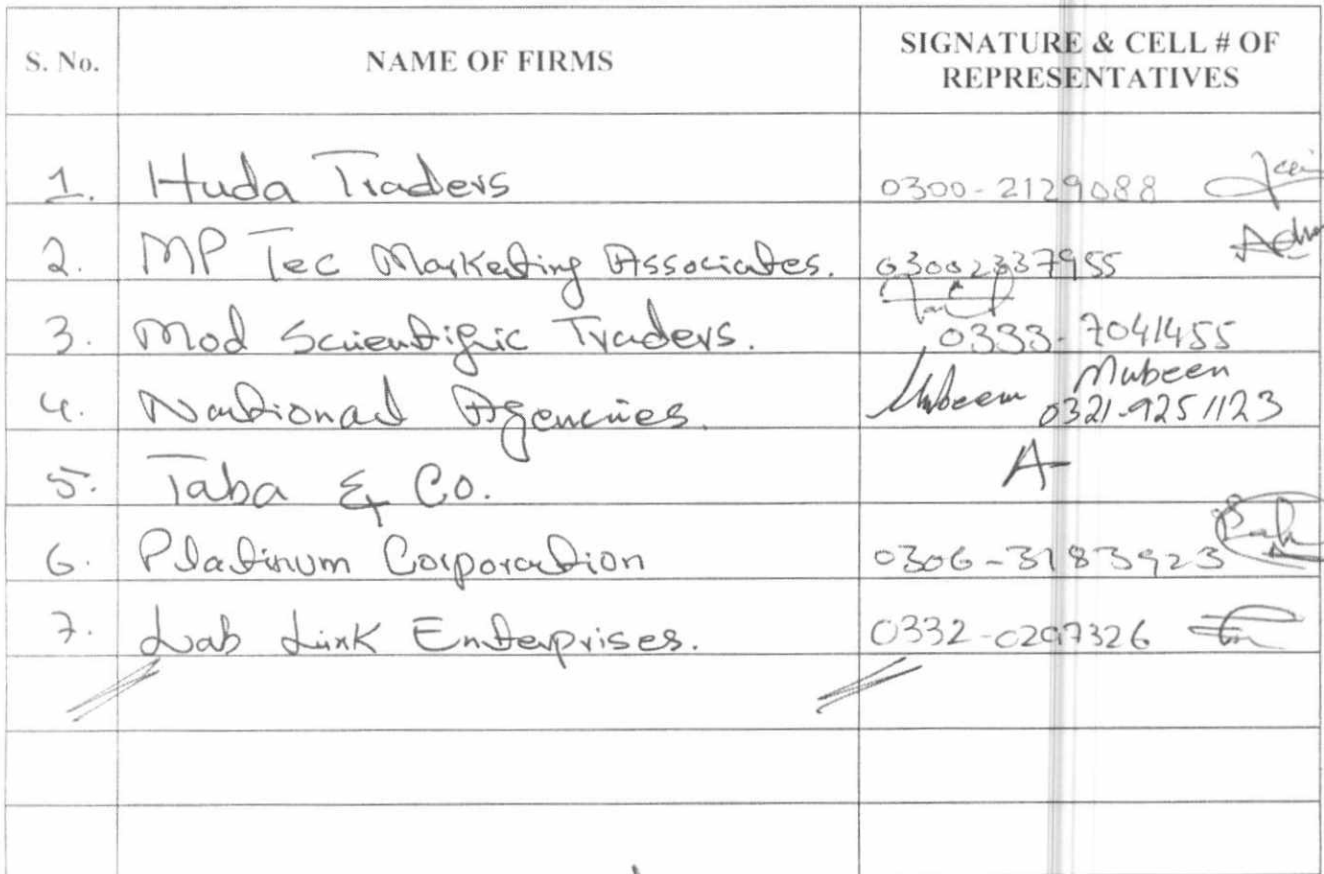 S. No. NAME OF FIRMS SIGNATURE & CELL # OF
REPRESENTATIVES
1. Huda Traders 0300-2129088
2. MP Tec Marketing Associates. 03002337955
3. Mod Scientific Traders. 0333-7041455
4. National Agencies. Mubeen Mubeen
0321-9251123
5. Taba & Co. A
6. Platinum Corporation 0306-3183923
7. Lab Link Enterprises. 0332-0297326